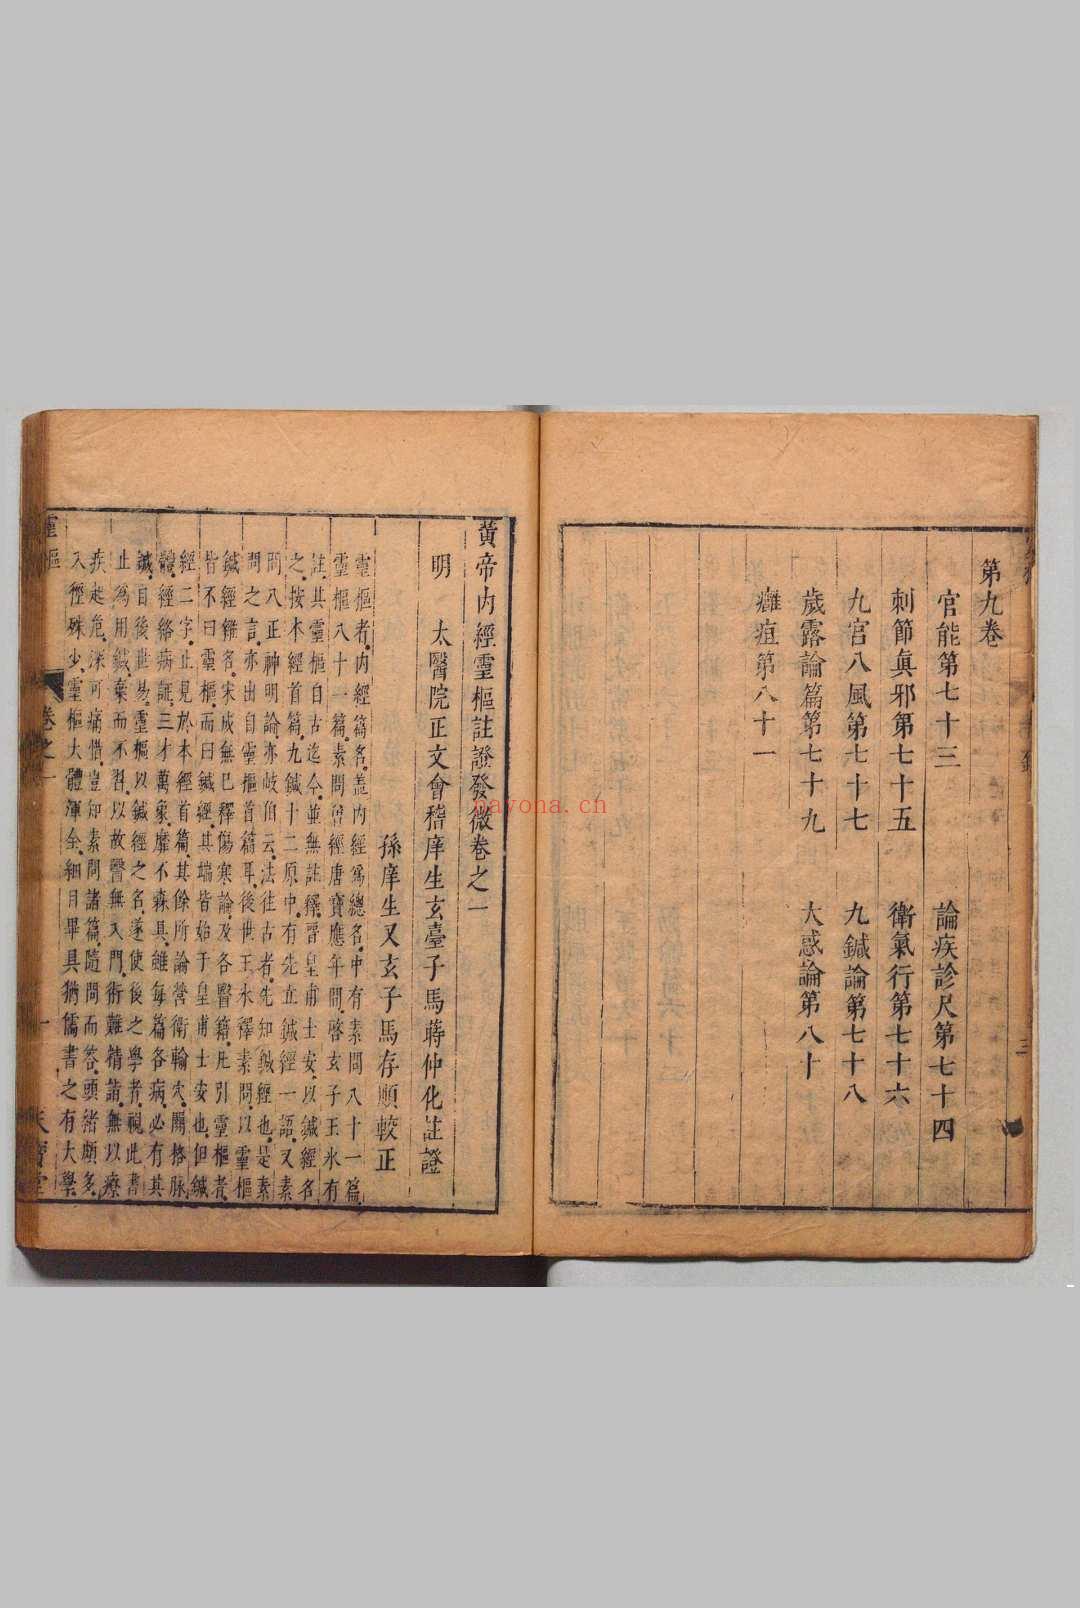 第九卷
官能第七十三
論疾診尺第七十四
刺節眞邪第七十五
衛氣行第七十六
九宮八風第七十七
九鍼論第七十八
歲露論篇第七十九
大惑論第八十
癰疽第八十一
三
黃帝內經靈樞註證發微卷之一
明 太醫院正文會稽庠生玄臺子馬蒔仲化註證
孫庠生又玄子馬存順較正
靈樞者。內經篇名。蓋內經爲總名。中有素問八十一篇。
靈樞八十一篇。素問曾經唐寶應年間。啓玄子王氷有
註。其靈樞自古迄今。並無註釋。晉皇甫士安。以鍼經名
之。按本經首篇。九鍼十二原中。有先立鍼經一語。又素
問八正神明論。亦岐伯云。法往古者。先知鍼經也。是素
問之言。亦出自靈樞首篇耳。後世王氷釋素問。以靈樞
鍼經雜名。宋成無已釋傷寒論。及各醫籍。凡引靈樞者。
皆不曰靈樞。而曰鍼經。其端皆始于皇甫士安也。但鍼
經二字。止見於本經首篇。其餘所論。營衛輸穴。關格脉
體。經絡病證。三才萬象。靡不森具。雖每篇各病。必有其
鍼。目後世易。靈樞以鍼經之名。遂使後之學者。視此書
止爲用鍼。棄而不習。以故醫無入門。術難精詣。無以療
疾起危。深可痛惜。豈知素問諸篇。隨問而答。頭緒頗多。
入徑殊少。靈樞大體渾全。細目畢具。猶儒書之有大學。
靈樞
卷之一
一
天寶堂
nayona.cn